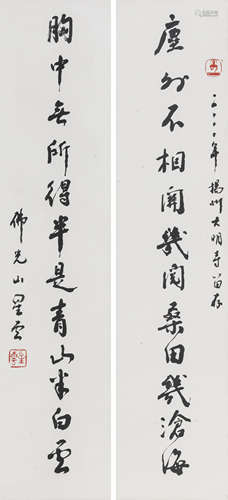 塵外不相關幾閱桑田幾滄海
二〇〇〇年揚州大明寺留存
胸中無所得半是青山半白雲
佛光山星雲